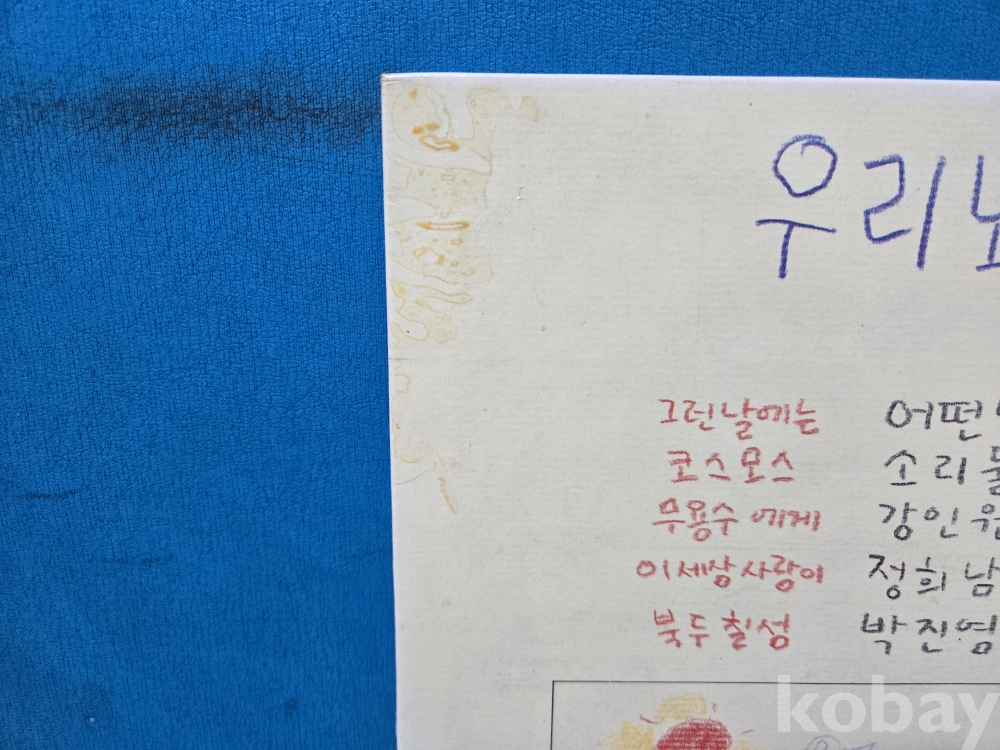 우리
그런날에는 어떤
코스모스 소리
무용수에게 강인원
이세상사랑이 정희남
북두칠성 박진영
kobay